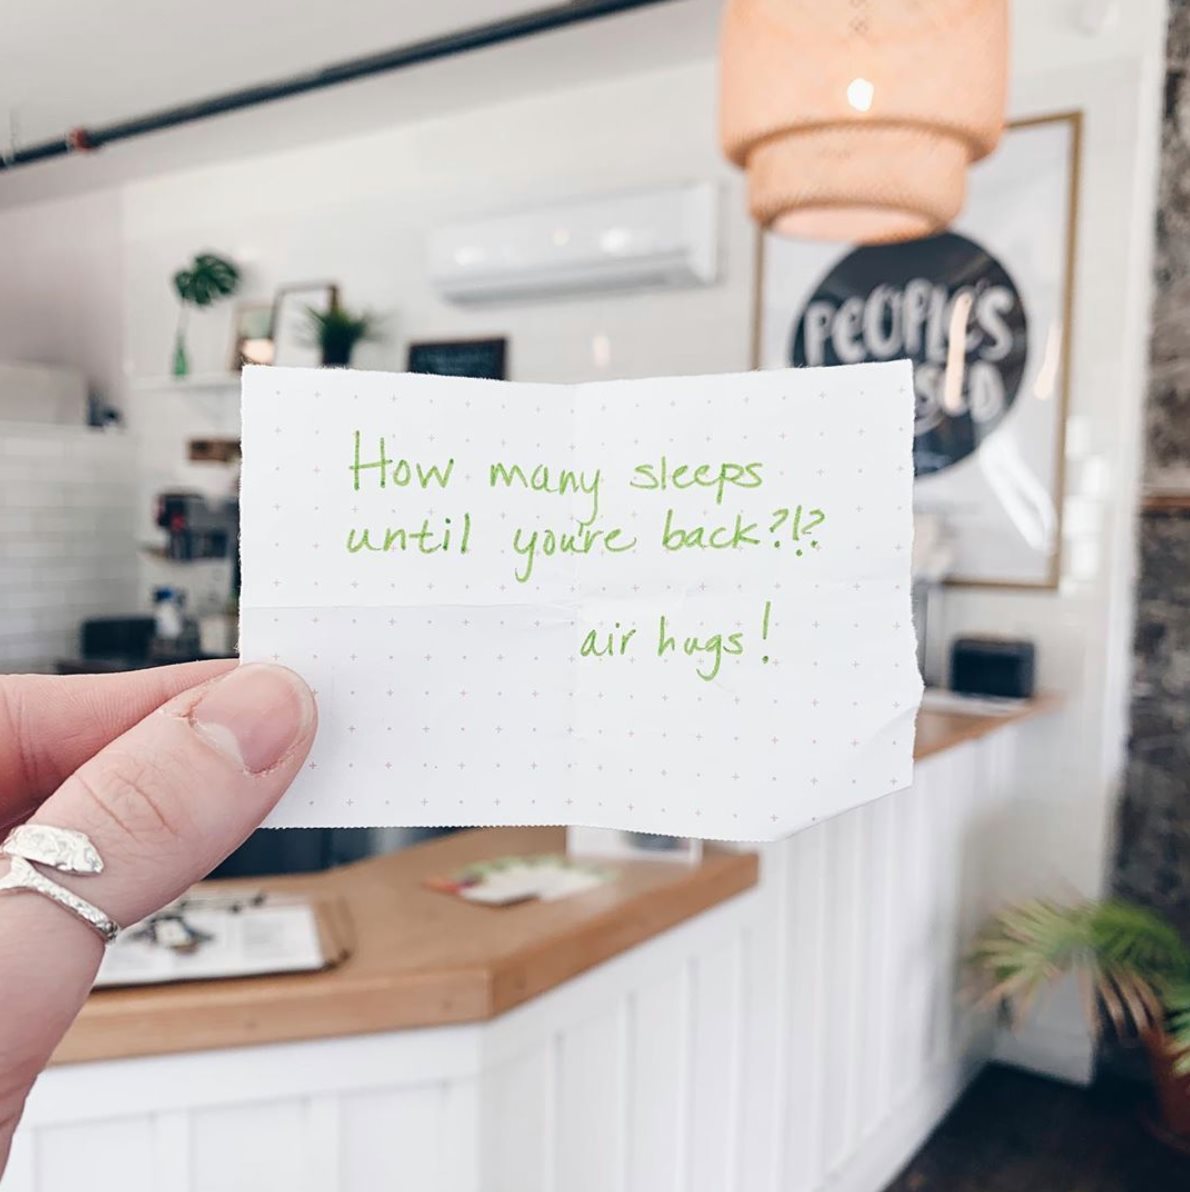 How many sleeps
until you're back?!?
air hugs!
PEOPLE'S